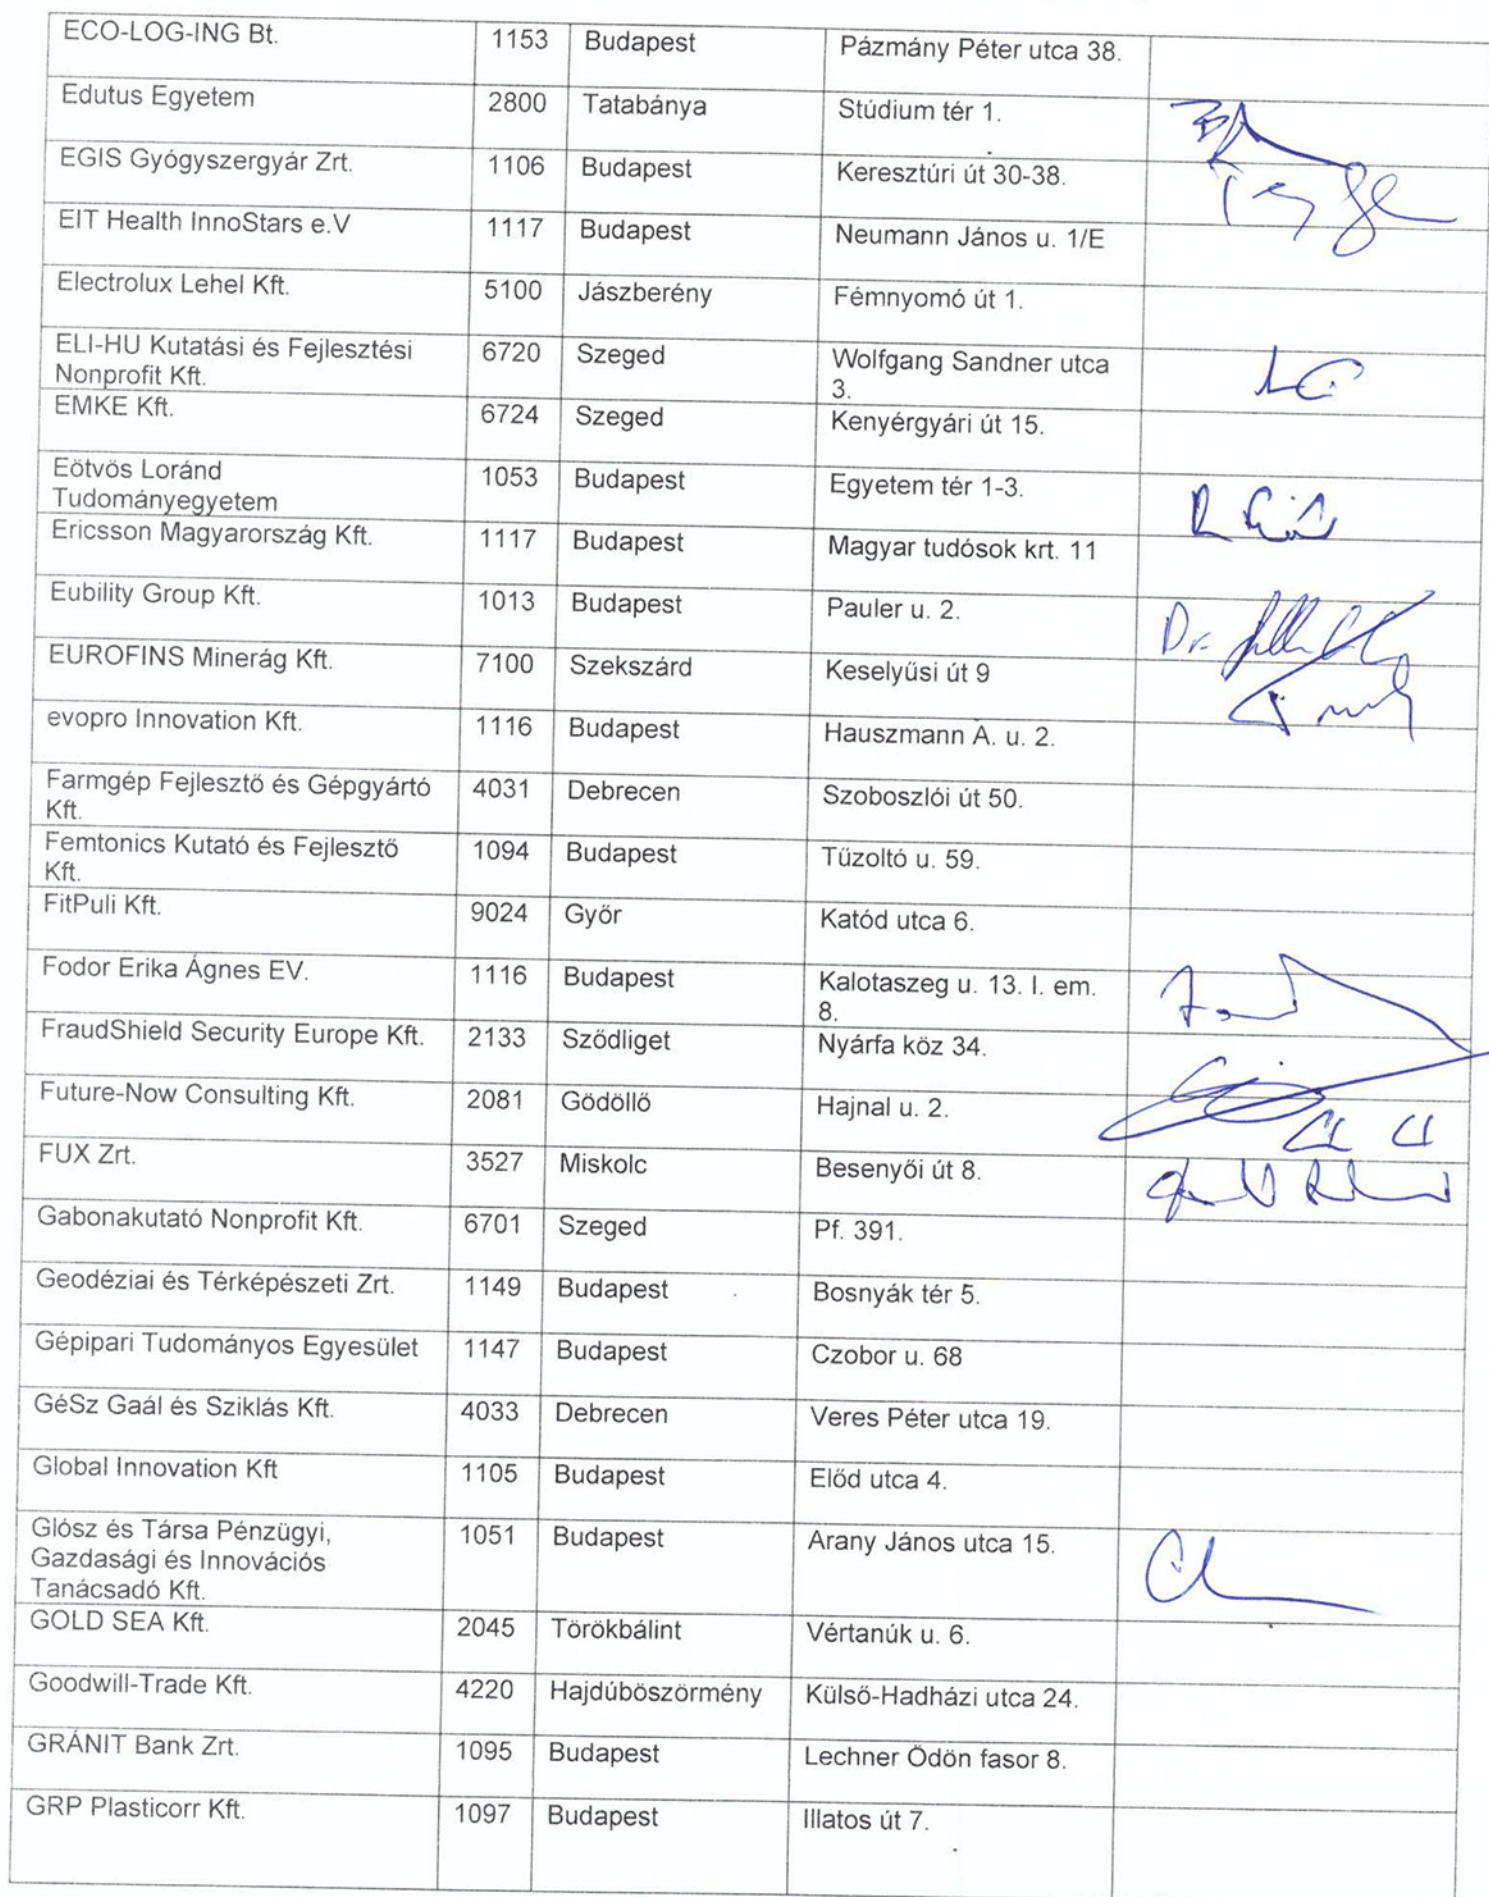 ECO-LOG-ING Bt. 1153 Budapest Pázmány Péter utca 38.
Edutus Egyetem 2800 Tatabánya Stúdium tér 1.
EGIS Gyógyszergyár Zrt. 1106 Budapest Keresztúri út 30-38.
EIT Health InnoStars e.V 1117 Budapest Neumann János u. 1/E
Electrolux Lehel Kft. 5100 Jászberény Fémnyomó út 1.
ELI-HU Kutatási és Fejlesztési 6720 Szeged Wolfgang Sandner utca
Nonprofit Kft. 3.
EMKE Kft. 6724 Szeged Kenyérgyári út 15.
Eötvös Loránd 1053 Budapest Egyetem tér 1-3.
Tudományegyetem
Ericsson Magyarország Kft. 1117 Budapest Magyar tudósok krt. 11
Eubility Group Kft. 1013 Budapest Pauler u. 2. Dr.
EUROFINS Minerág Kft. 7100 Szekszárd Keselyűsi út 9
evopro Innovation Kft. 1116 Budapest Hauszmann A. u. 2.
Farmgép Fejlesztő és Gépgyártó 4031 Debrecen Szoboszlói út 50.
Kft.
Femtonics Kutató és Fejlesztő 1094 Budapest Tűzoltó u. 59.
Kft.
FitPuli Kft. 9024 Győr Katód utca 6.
Fodor Erika Ágnes EV. 1116 Budapest Kalotaszeg u. 13. I. em.
8.
FraudShield Security Europe Kft. 2133 Sződliget Nyárfa köz 34.
Future-Now Consulting Kft. 2081 Gödöllő Hajnal u. 2.
FUX Zrt. 3527 Miskolc Besenyői út 8.
Gabonakutató Nonprofit Kft. 6701 Szeged Pf. 391.
Geodéziai és Térképészeti Zrt. 1149 Budapest Bosnyák tér 5.
Gépipari Tudományos Egyesület 1147 Budapest Czobor u. 68
GéSz Gaál és Sziklás Kft. 4033 Debrecen Veres Péter utca 19.
Global Innovation Kft 1105 Budapest Előd utca 4.
Glósz és Társa Pénzügyi, 1051 Budapest Arany János utca 15.
Gazdasági és Innovációs
Tanácsadó Kft.
GOLD SEA Kft. 2045 Törökbálint Vértanúk u. 6.
Goodwill-Trade Kft. 4220 Hajdúböszörmény Külső-Hadházi utca 24.
GRÁNIT Bank Zrt. 1095 Budapest Lechner Ödön fasor 8.
GRP Plasticorr Kft. 1097 Budapest Illatos út 7.